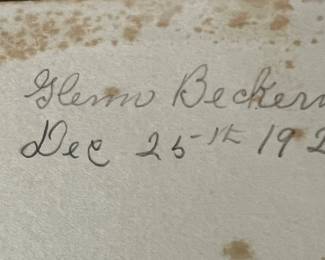 Glenn Beckern
Dec 25th 192